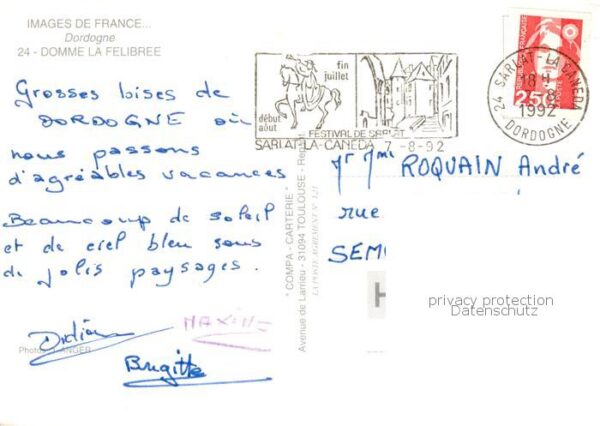 IMAGES DE FRANCE...
Dordogne
24 - DOMME LA FELIBREE
Grosses bises de
DORDOGNE où
nous passons
d'agréables vacances
Beaucoup de soleil
et de ciel bleu sous
de jolis paysages.
Didier
MAXIME
Brigitte
Photos J. ANGER
" COMPA - CARTERIE "
Avenue de Larrieu - 31094 TOULOUSE -
LA POSTE AGREMENT N° 321
fin
juillet
début
août
FESTIVAL DE SARLAT
SARLAT-LA-CANEDA 7-8-92
24 SARLAT-LA CANEDA
18 H
1992
DORDOGNE
FRANÇAISE
2,50
Mr Mme ROQUAIN André
rue
SEM
privacy protection
Datenschutz